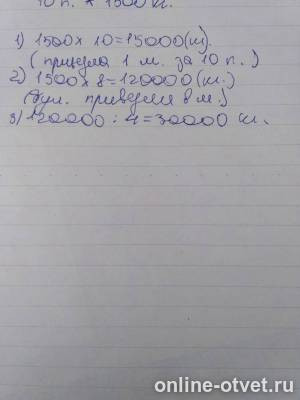 10 п. * 1500 кг.
1) 1500 х 10 = 15000 (кг).
( привезла 1 м. за 10 п. )
2) 1500 х 8 = 120000 (кг.)
привезли 8 м.)
3) 120000 : 4 = 30000 кг.
online-otvet.ru